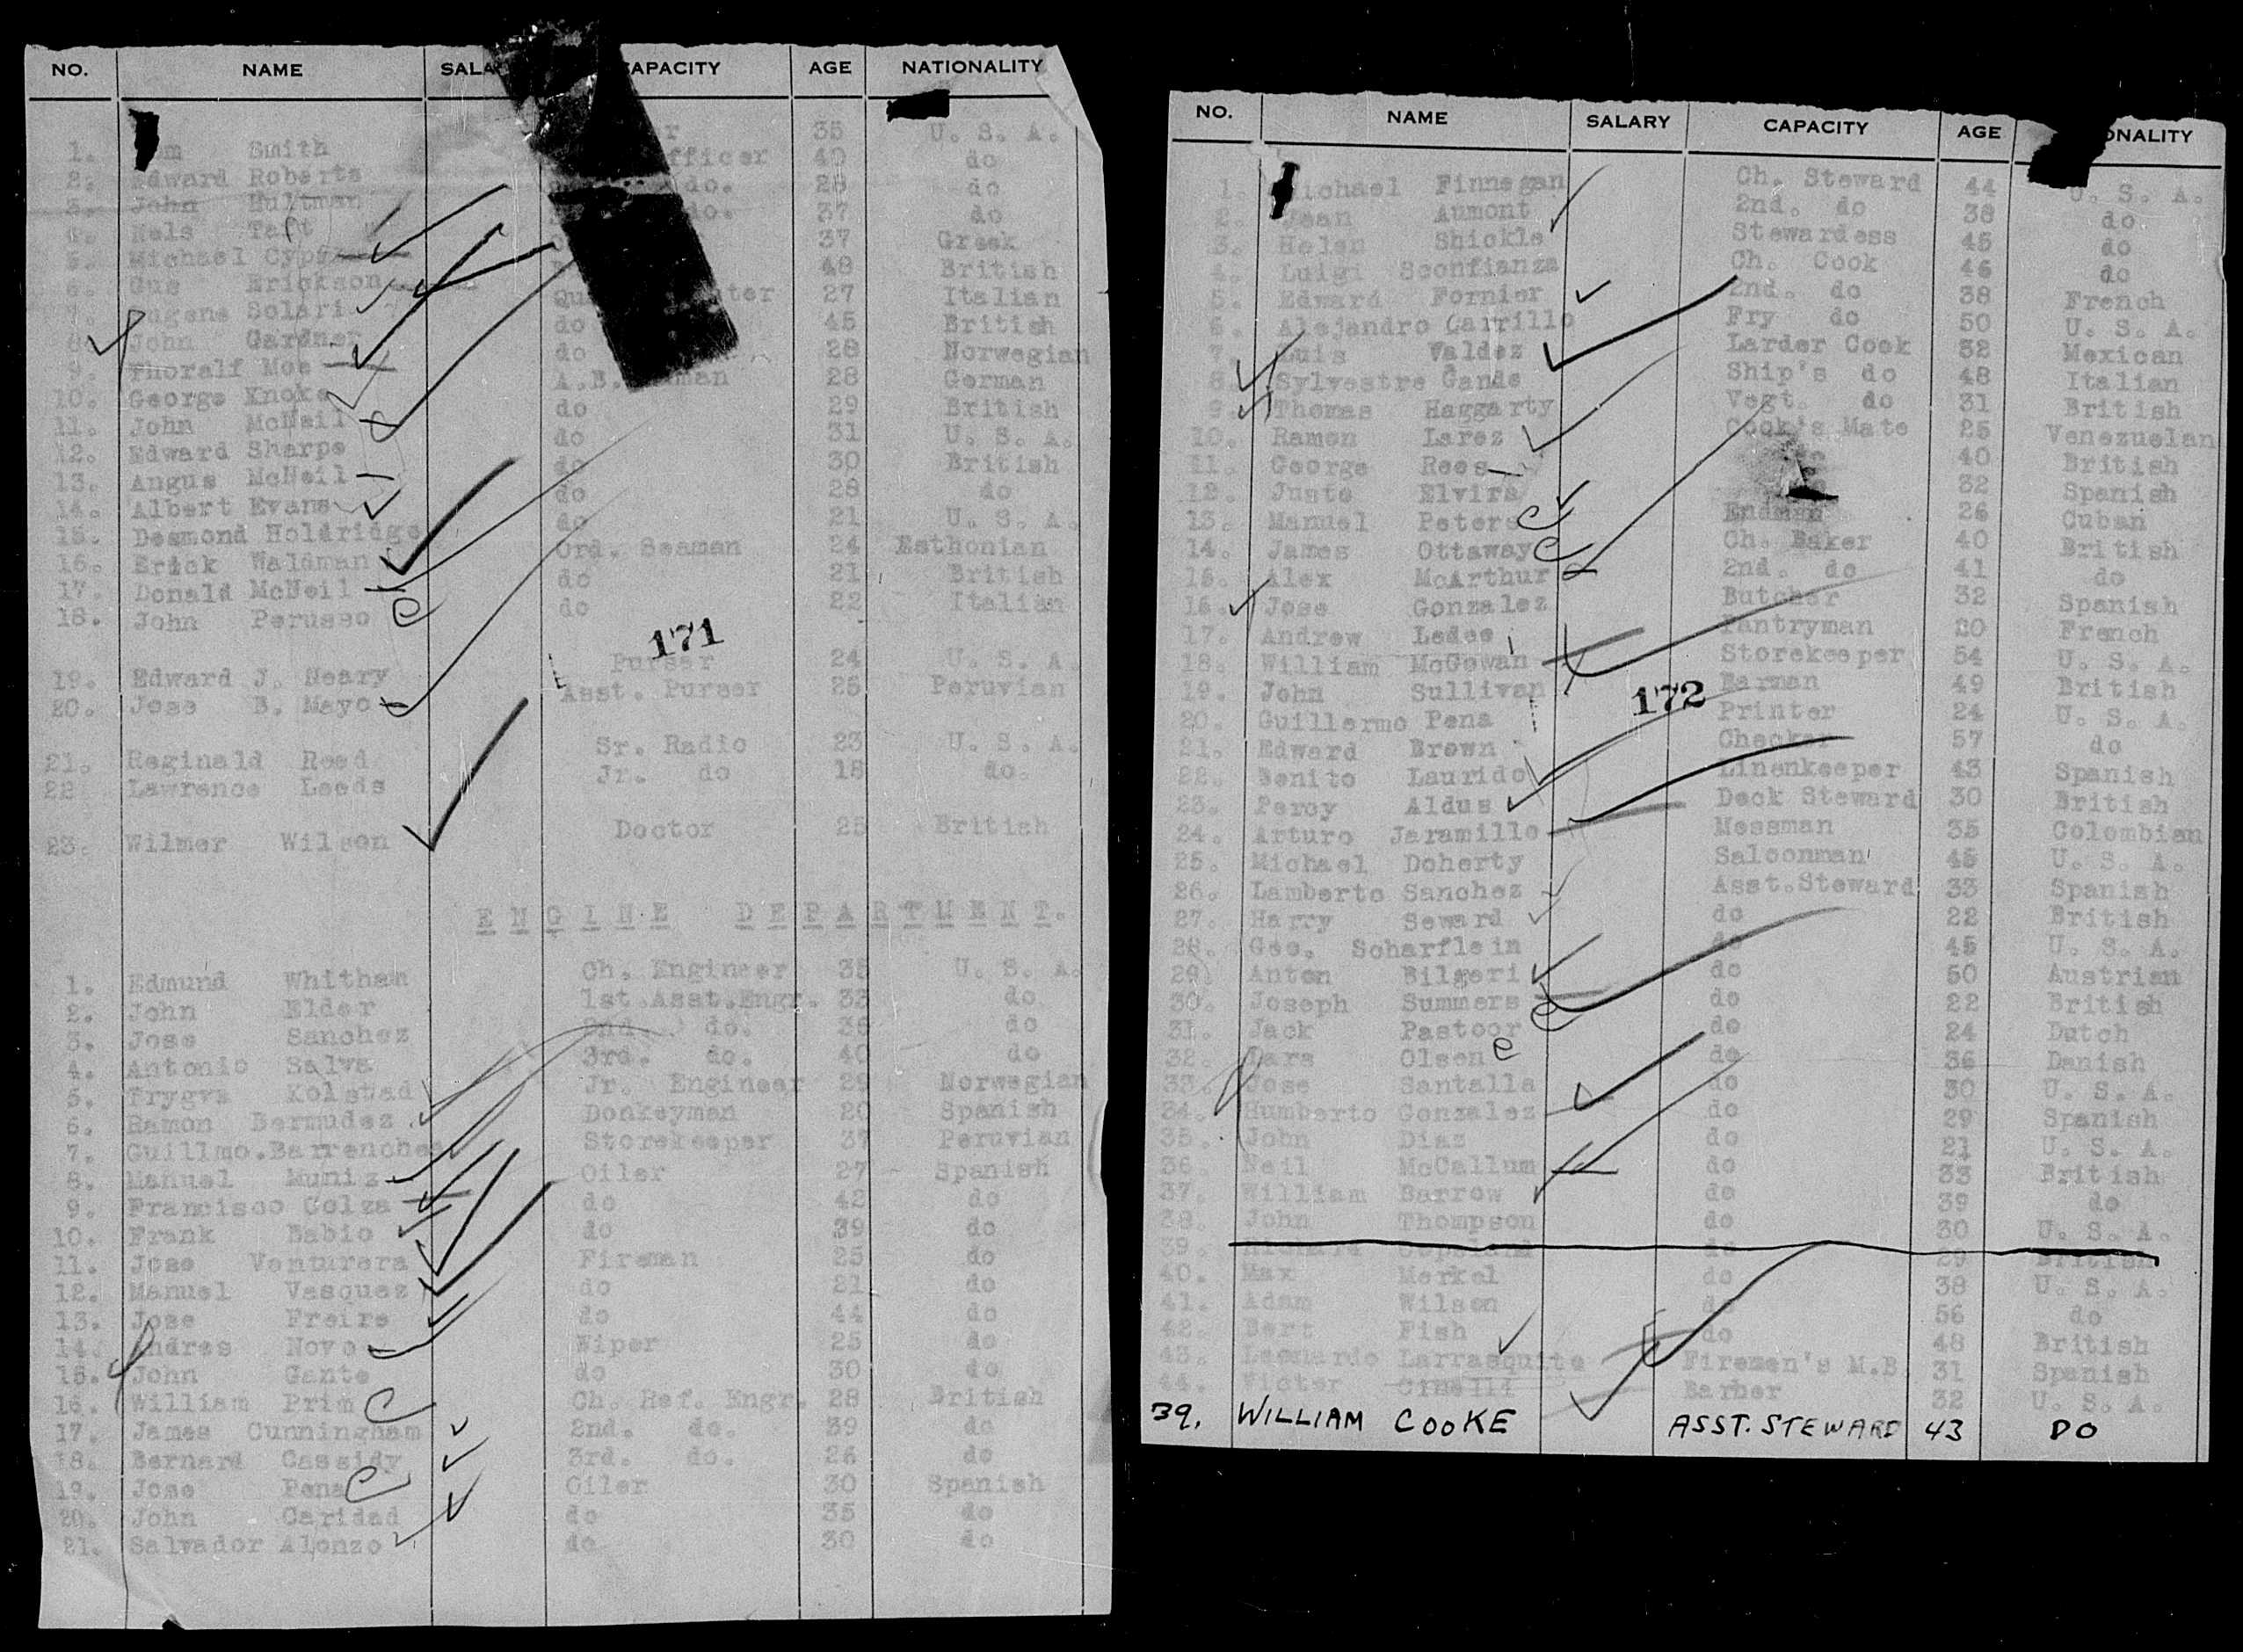 NO. NAME CAPACITY AGE NATIONALITY
1. Smith 35 U. S. A.
2. Edward Roberts 40 do
3. John Hultman do. 28 do
4. Nels Taft do. 37 do
5. Michael 37 Greek
6. Gus Erickson 48 British
7. Eugene Solari 27 Italian
8. John Gardner do 45 British
9. Thoralf Moe do 28 Norwegian
10. George Knoke A.B. 28 German
11. John McNeil do 29 British
12. Edward Sharpe do 31 U. S. A.
13. Angus McNeil do 30 British
14. Albert Evans do 28 do
15. Desmond Holdridge do 21 U. S. A.
16. Erick Waldman Ord. Seaman 24 Esthonian
17. Donald McNeil do 21 British
18. John Perusso do 22 Italian
171
19. Edward J. Neary Purser 24 U. S. A.
20. Jose B. Mayo Asst. Purser 25 Peruvian
21. Reginald Reed Sr. Radio 23 U. S. A.
22 Lawrence Leeds Jr. do 18 do.
23. Wilmer Wilson Doctor 25 British
ENGINE DEPARTMENT.
1. Edmund Whitham Ch. Engineer 35 U. S. A.
2. John Elder 1st.Asst.Engr. 33 do
3. Jose Sanchez 2nd. do. 36 do
4. Antonio Salva 3rd. do. 40 do
5. Trygve Kolstad Jr. Engineer 29 Norwegian
6. Ramon Bermudez. Donkeyman 20 Spanish
7. Guillmo.Barrenchea Storekeeper 37 Peruvian
8. Manuel Muniz Oiler 27 Spanish
9. Francisco Golza do 42 do
10. Frank Babio do 39 do
11. Jose Venturera Fireman 25 do
12. Manuel Vasquez do 21 do
13. Jose Freire do 44 do
14. Andres Novo Wiper 25 do
15. John Gante do 30 do
16. William Prim Ch. Ref. Engr. 28 British
17. James Cunningham 2nd. do. 39 do
18. Bernard Cassidy 3rd. do. 26 do
19. Jose Pena Oiler 30 Spanish
20. John Caridad do 35 do
21. Salvador Alonzo do 30 do
NO. NAME SALARY CAPACITY AGE
1. Michael Finnegan Ch. Steward 44 U. S. A.
2. Jean Aumont 2nd. do 38 do
3. Helen Shickle Stewardess 45 do
4. Luigi Sconfianza Ch. Cook 46 do
5. Edward Fornier 2nd. do 38 French
6. Alejandro Carrillo Fry do 50 U. S. A.
7. Luis Valdez Larder Cook 32 Mexican
8. Sylvestre Gande Ship's do 48 Italian
9. Thomas Haggarty Vegt. do 31 British
10. Ramon Larez Cook's Mate 25 Venezuelan
11. George Rees 40 British
12. Justo Elvira 32 Spanish
13. Manuel Peters Endman 26 Cuban
14. James Ottaway Ch. Baker 40 British
15. Alex McArthur 2nd. do 41 do
16. Jose Gonzalez Butcher 32 Spanish
17. Andrew Ledee Pantryman 20 French
18. William McGowan Storekeeper 54 U. S. A.
19. John Sullivan Barman 49 British
172
20. Guillermo Pena Printer 24 U. S. A.
21. Edward Brown Checker 57 do
22. Benito Laurido Linenkeeper 43 Spanish
23. Percy Aldus Deck Steward 30 British
24. Arturo Jaramillo Messman 35 Colombian
25. Michael Doherty Saloonman 45 U. S. A.
26. Lamberto Sanchez Asst.Steward 33 Spanish
27. Harry Seward do 22 British
28. Geo. Scharflein do 45 U. S. A.
29. Anton Bilgeri do 50 Austrian
30. Joseph Summers do 22 British
31. Jack Pastoor do 24 Dutch
32. Lars Olsen do 36 Danish
33. Jose Santalla do 30 U. S. A.
34. Humberto Gonzalez do 29 Spanish
35. John Diaz do 21 U. S. A.
36. Neil McCallum do 33 British
37. William Barrow do 39 do
38. John Thompson do 30 U. S. A.
39. Richard Copeland do 29 British
40. Max Merkel do 38 U. S. A.
41. Adam Wilson do 56 do
42. Bert Fish do 48 British
43. Leonardo Larrasquite Firemen's M.B. 31 Spanish
44. Victor Cinelli Barber 32 U. S. A.
39. WILLIAM COOKE ASST. STEWARD 43 DO